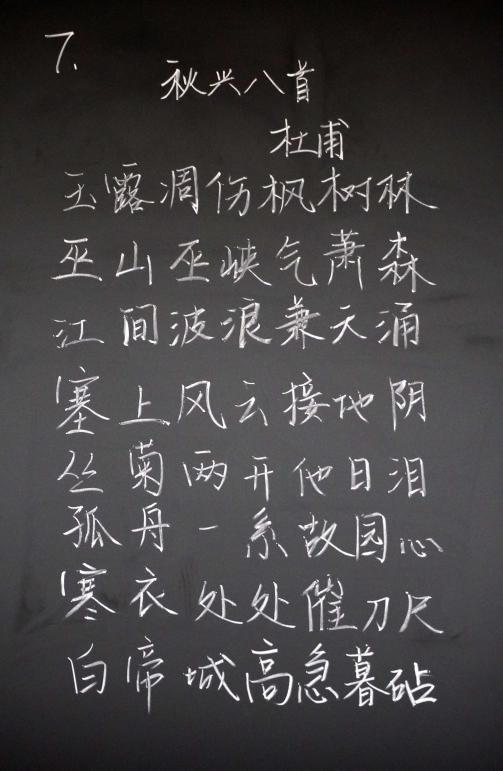 7.
秋兴八首
杜甫
玉露凋伤枫树林
巫山巫峡气萧森
江间波浪兼天涌
塞上风云接地阴
丛菊两开他日泪
孤舟一系故园心
寒衣处处催刀尺
白帝城高急暮砧